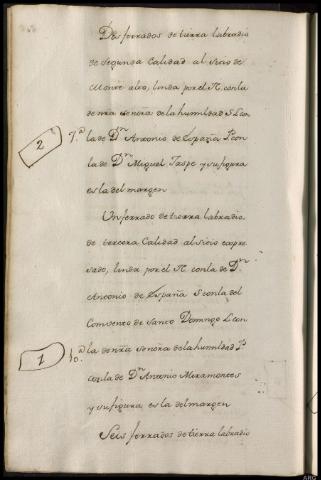 Dos ferrados de tierra labradio
de segunda Calidad al sitio de
Monte alvo, linda por el N. con la
de nra señora de la humildad S. L. con
2 7.ª la de Dn Antonio de España P. con
la de Dn Miguel Taspe y su figura
es la del margen
Un ferrado de tierra labradio
de tercera Calidad al sitio expre
sado, linda por el N. con la de Dn
Antonio de España S con la del
Comvento de Santo Domingo L con
1 la de nra señora de la humildad P.
con la de Dn Antonio Miramontes
y su figura es la del margen
Seis ferrados de tierra labradio